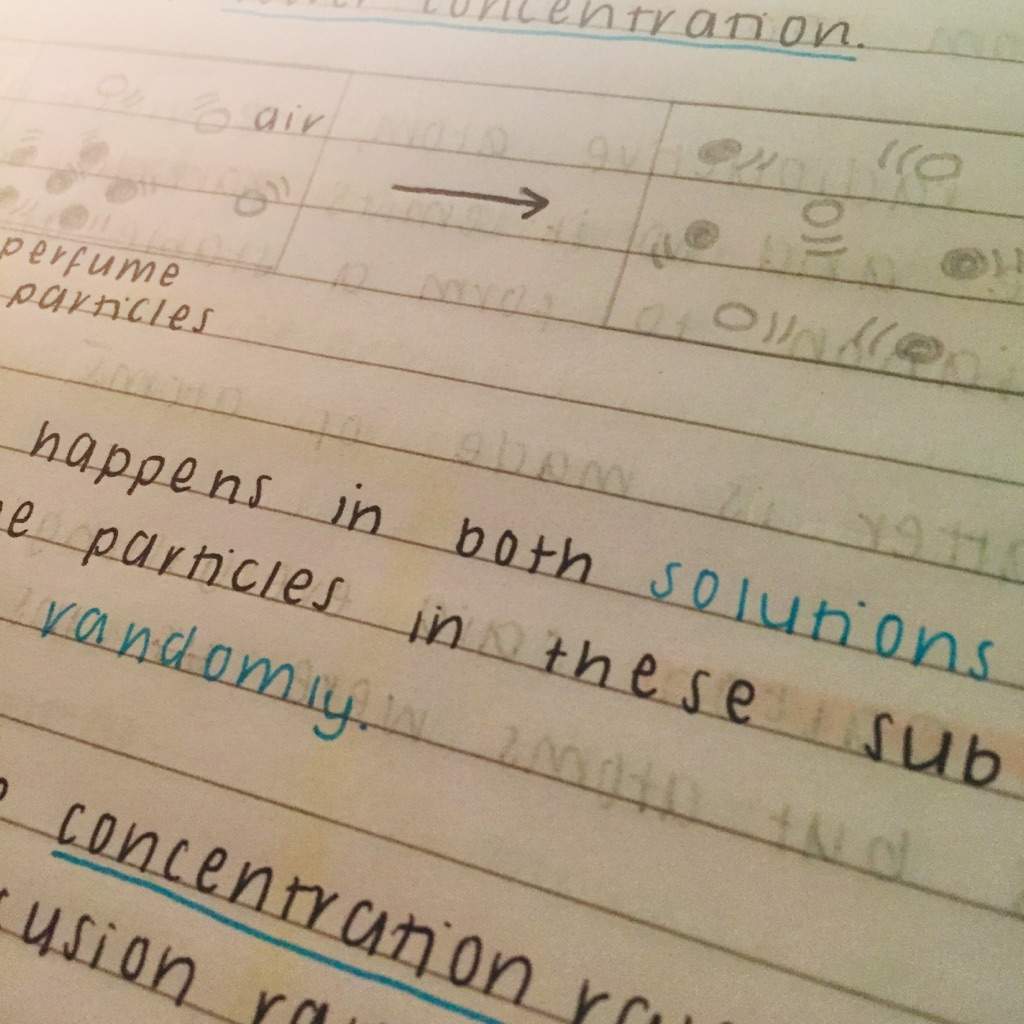 concentration.
air
perfume
particles
happens in both solutions
particles in these sub
randomly.
concentration
usion